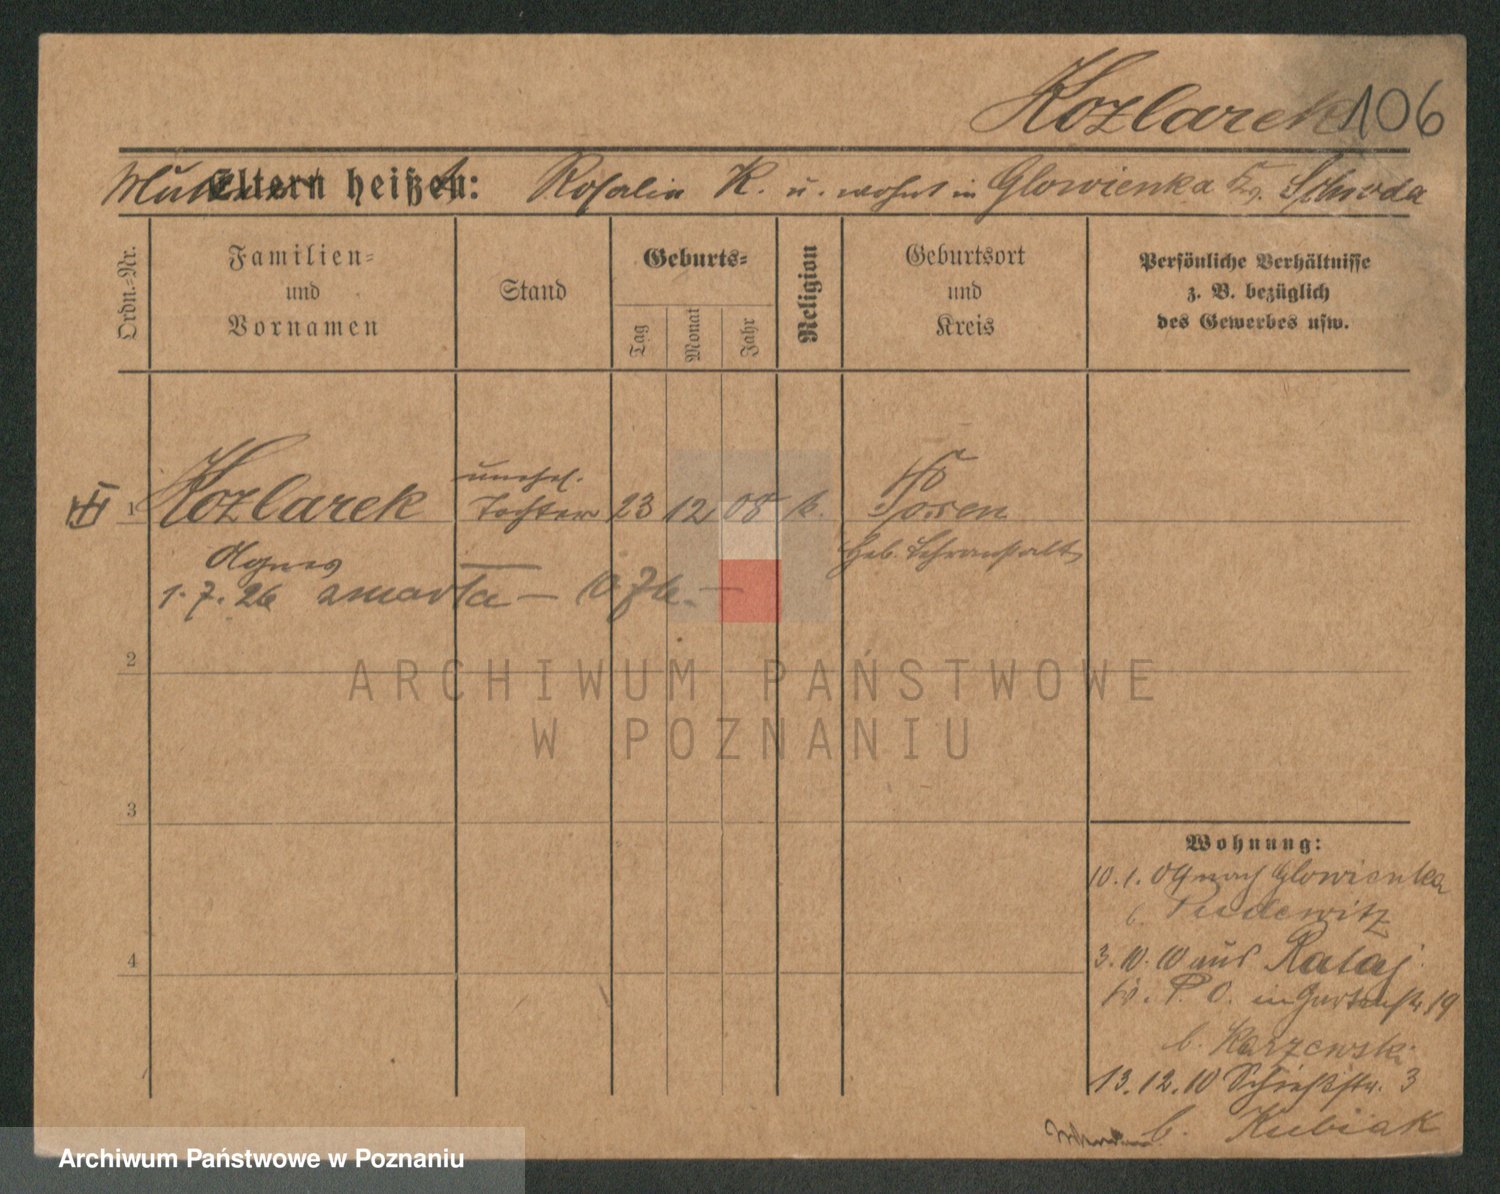 Kozlarek 106
Mutter Eltern heißen: Rosalia K. u. wohnt in Glowienka Kr. Schroda
Ordn.-Nr.
Familien-
und
Vornamen
Stand
Geburts-
Tag
Monat
Jahr
Religion
Geburtsort
und
Kreis
Persönliche Verhältnisse
z. B. bezüglich
des Gewerbes usw.
unehel.
1 Kozlarek Tochter 23 12 08 k. Posen
Agnes Heb. Lehranstalt
1. 7. 26 zmarła —
2
ARCHIWUM PAŃSTWOWE
W POZNANIU
3
Wohnung:
10. 1. 09 nach Glowienka
b. Pudewitz
4
3. 10. 10 aus Rataj
Kr. P. O. in Gartenstr. 19
b. Karzewski
13. 12. 10 Schießstr. 3
b. Kubiak
Archiwum Państwowe w Poznaniu